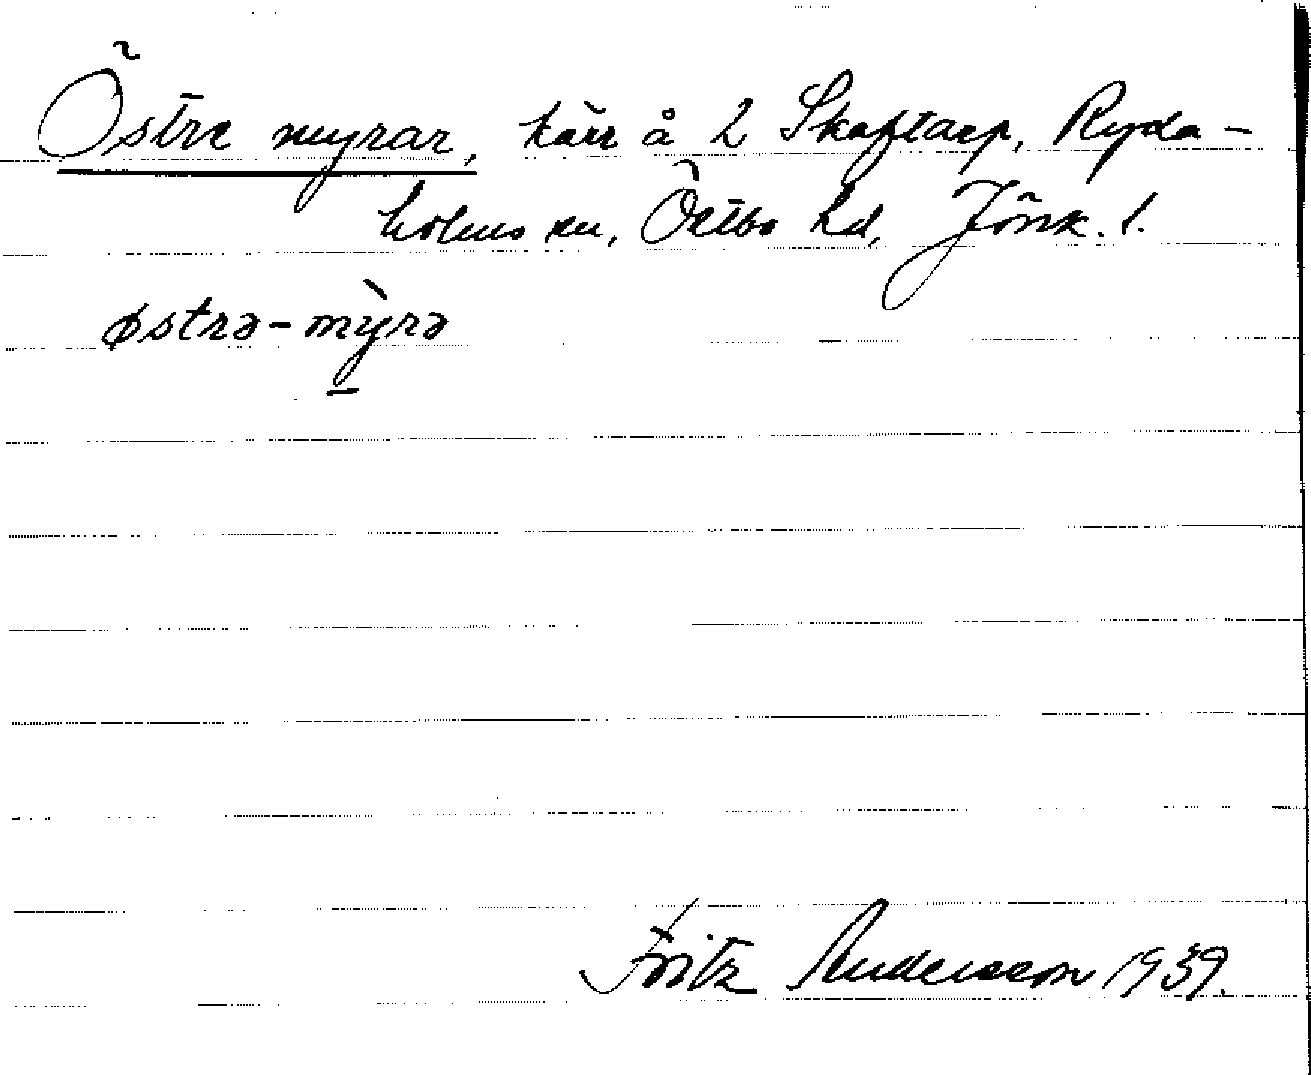 Östre myrar, kärr å 2 Skaftarp, Ryda-
holms sn, Östbo hd, Jönk. l.
østrə-mỳrə
Fritz Andersson 1939.